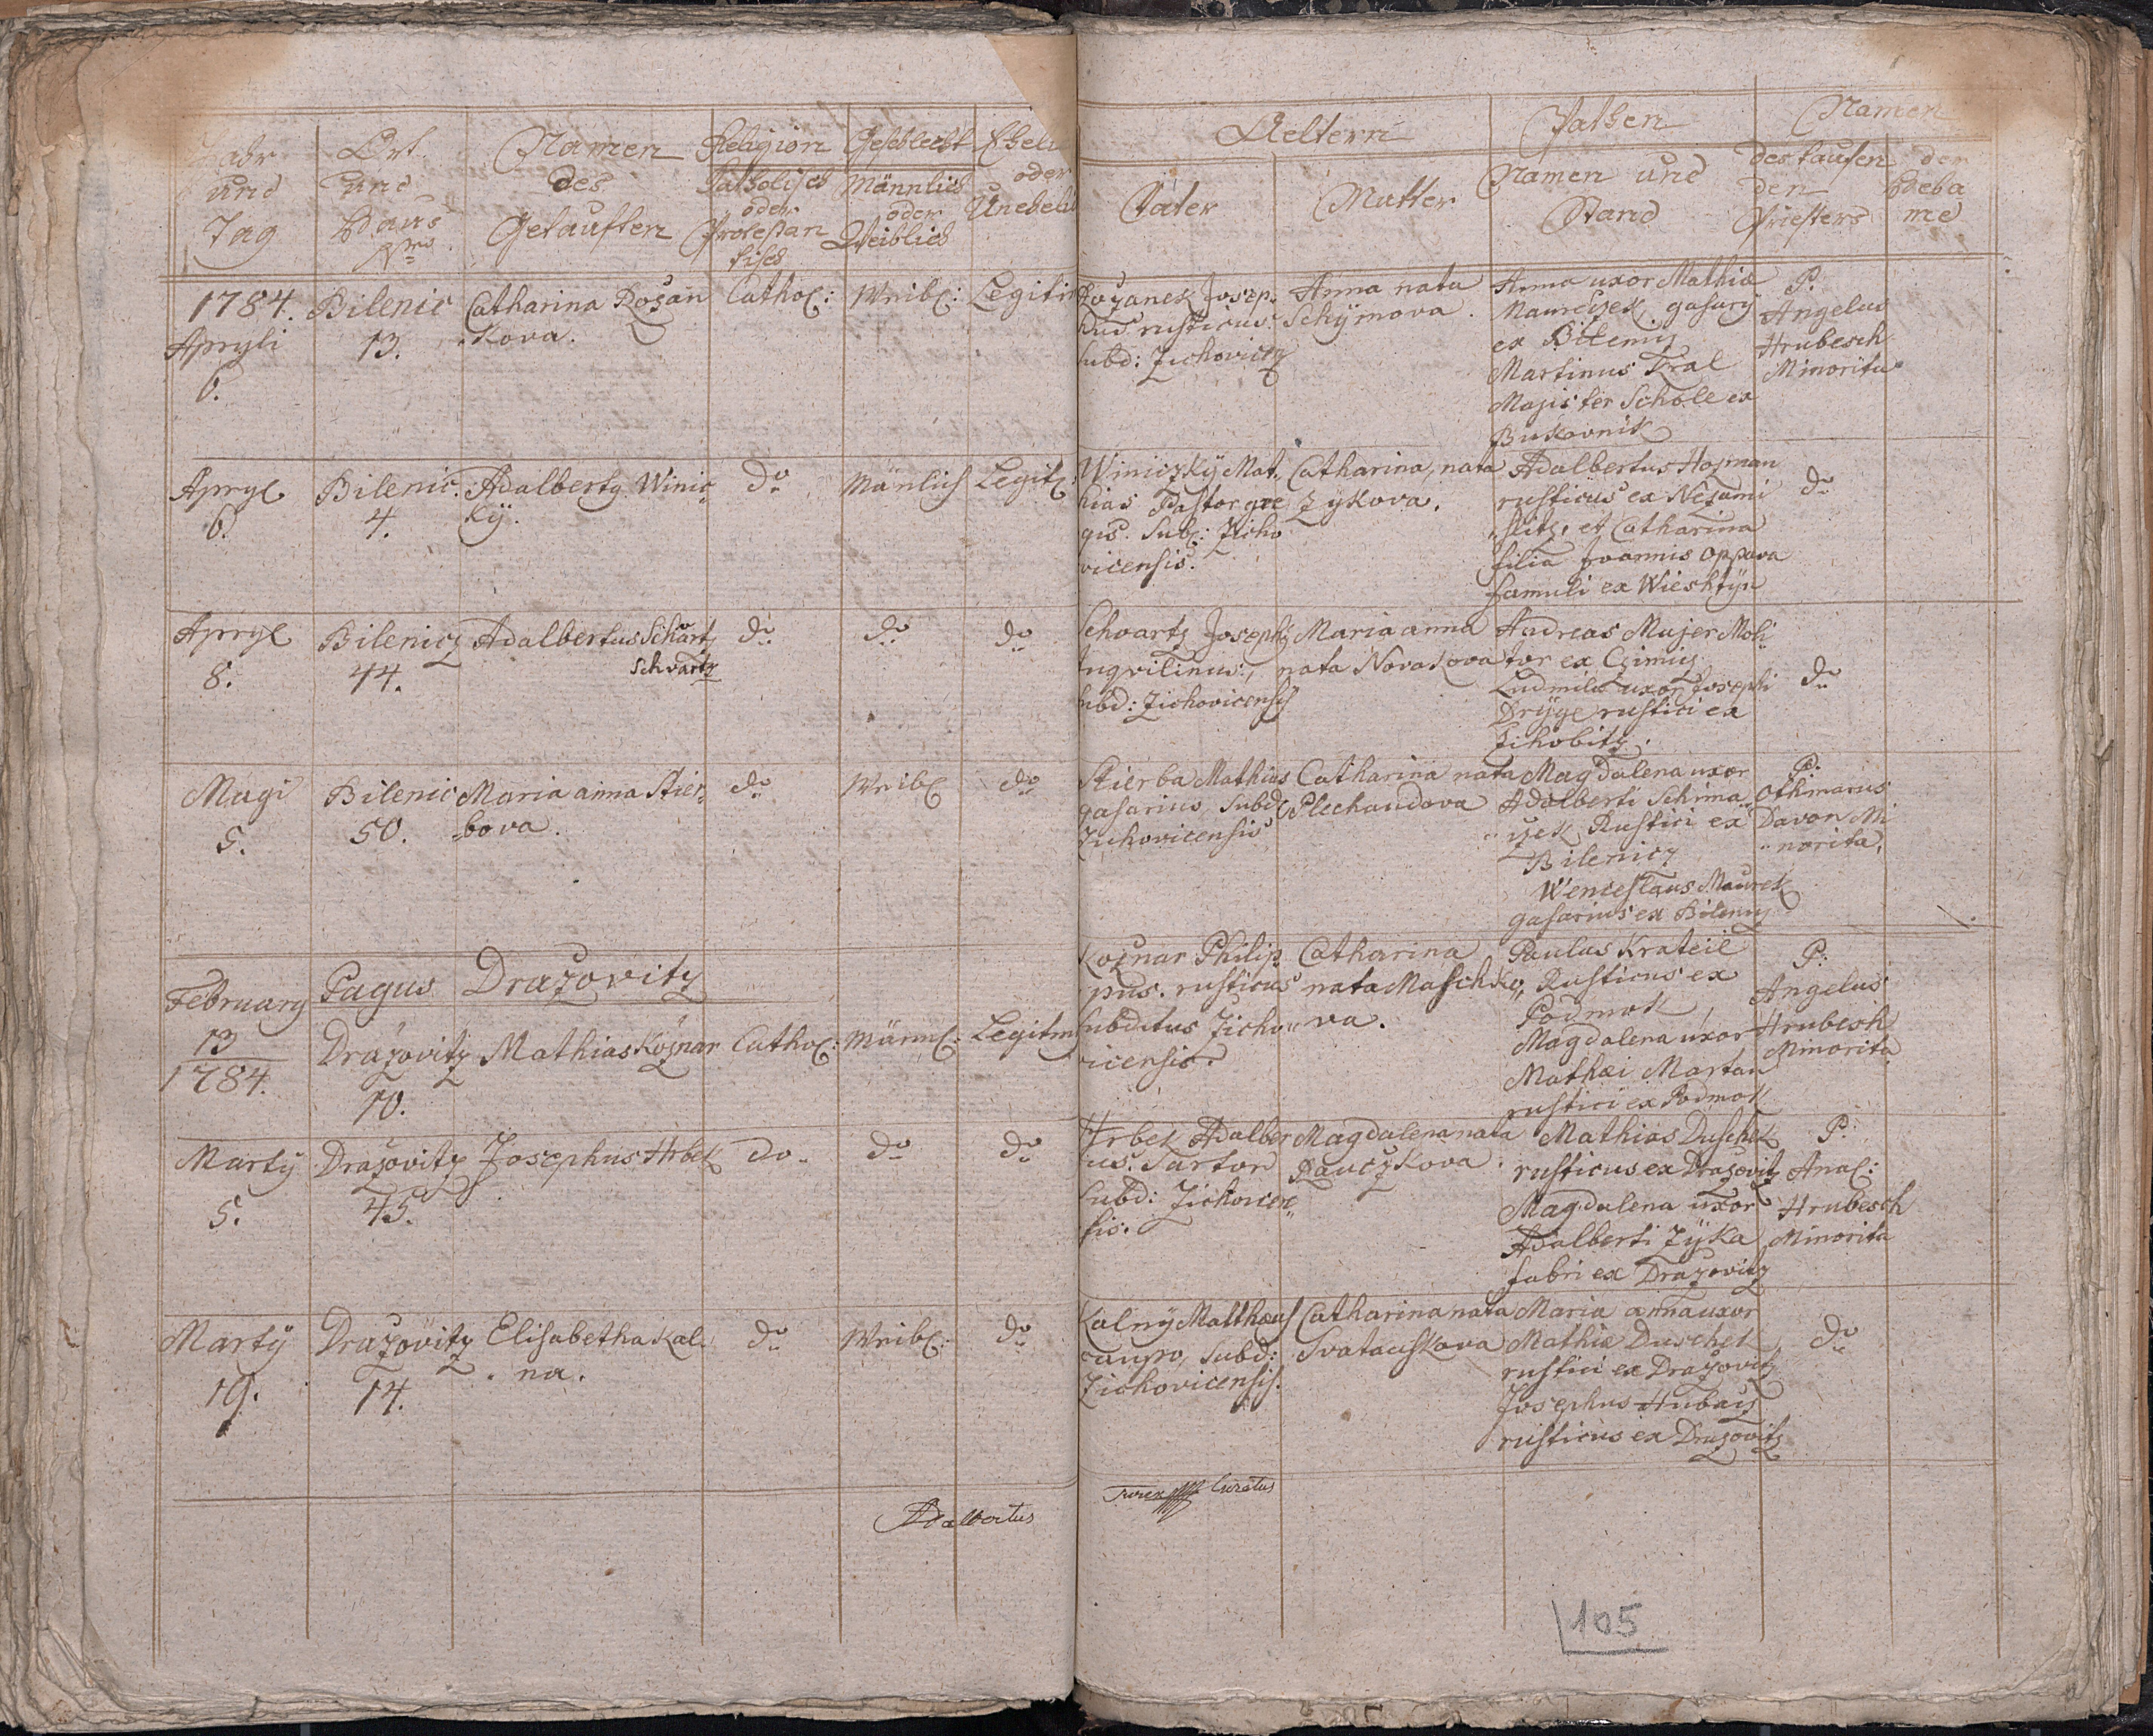 Jahr
und
Tag
Ort
und
Haus
Nro
Namen
des
Getauften
Religion
Katholisch
oder
Protestan
tisch
Geschlecht
Männlich
oder
Weiblich
Eheli
oder
Unehelich
Aeltern
Vater
Mutter
Pathen
Namen und
Stand
Namen
des taufen
den
Priesters
der
Heba
me
1784.
Apryli
6.
Bilenic
13.
Catharina Rožan
kova.
Cathol:
Weibl:
Legitim
Rožanek Josep
hus rusticus
subd: Zichovicz
Anna nata
Schÿmova.
Anna uxor Mathiæ
Maureczek, gasarÿ
ex Bilenicz
Martinus Kral
Magister Schole ex
Bukovnik
P.
Angelus
Hrubesch
Minorita
Apryl
6.
Bilenic.
4.
Adalbertg Winic
kÿ.
do
Mänlich
Legit:
Winiczkÿ Mat
hias Pastor gre
gis. Sub: Zicho
vicensis.
Catharina, nata
Zÿkova.
Adalbertus Hosman
rusticus ex Nezami
slitz, et Catharina
filia Joannis Oppava
famuli ex Wieshtÿn
do
Apryl
8.
Bilenicz
44.
Adalbertus Schvartz
Schvartz
do
do
do
Schvartz Joseph
Inqvilinus,
subd: Zichovicensis
Maria anna
nata Novakova
Andreas Majer Moli
tor ex Czimicz
Ludmila uxor Josephi
Drÿge rustici ex
Zihobitz.
do
Magi
5.
Bilenic
50.
Maria anna Stier
bova.
do
Weibl
do
Stierba Mathias
gasarius, subd
Zichovicensis
Catharina nata
Plechandova
Magdalena uxor
Adalberti Schima
czek Rustici ex
Bilenicz
Wenceslaus Maurek
gasarius ex Bilenicz
P:
Othmarus
Davon Mi
norita.
Pagus Dražovitz
February
13
1784.
Dražovitz
70.
Mathias Kožnar
Cathol:
Männl:
Legitm
Kožnar Philip
pus. rusticus
subditus Zicho
vicensis.
Catharina
nata Maschko
va.
Paulus Krateil
Rusticus ex
Podmok
Magdalena uxor
Mathæi Martan
rustici ex Podmok
P:
Angelus
Hrubesh
Minorita
Martÿ
5.
Dražovitz
45.
Josephus Hrbek
do
do
do
Hrbek Adalber
tus. Sartor
subd: Zichovicen
sis.
Magdalena nata
Rauczkova.
Mathias Duschek
rusticus ex Dražovitz
Magdalena uxor
Adalberti Zÿka
fabri ex Dražovitz
P:
Angl:
Hrubesch
Minorita
Martÿ
19.
Dražovitz
14.
Elisabetha Kal
na.
do
Weibl:
do
Kalnÿ Matthæus
caupo, subd:
Zichovicensis.
Catharina nata
Svatauskova
Maria anna uxor
Mathiæ Duschek
rustici ex Dražovitz
Josephus Hubacz
rusticus ex Dražovitz
do
Adalbertus
Curatus
105